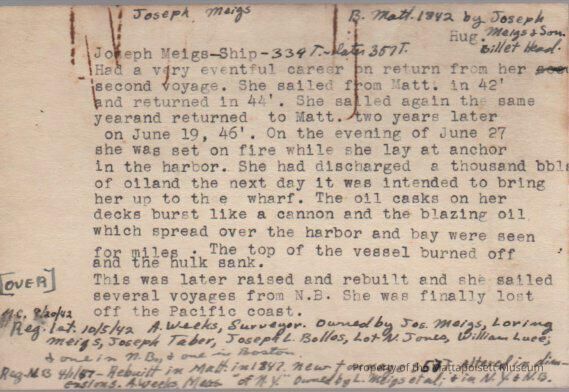 Joseph Meigs
B. Matt. 1842 by Joseph
Meigs & Son.
Hug. Billet Head.
Joseph Meigs-Ship-339 T.-later 357 T.
Had a very eventful career on return from her
second voyage. She sailed from Matt. in 42'
and returned in 44'. She sailed again the same
yearand returned to Matt. two years later
on June 19, 46'. On the evening of June 27
she was set on fire while she lay at anchor
in the harbor. She had discharged a thousand bbls
of oiland the next day it was intended to bring
her up to th e wharf. The oil casks on her
decks burst like a cannon and the blazing oil
which spread over the harbor and bay were seen
for miles. The top of the vessel burned off
and the hulk sank.
[OVER]
This was later raised and rebuilt and she sailed
several voyages from N.B. She was finally lost
off the Pacific coast.
9/20/42
Reg. Lat. 10/5/42 A. Weeks, Surveyor. Owned by Jos. Meigs, Loring
Meigs, Joseph Taber, Joseph L. Bolles, Lot N. Jones, William Luce,
& one in N.B., & one in Boston.
Reg. N.B 4/1/57- Rebuilt in Matt in 1847. new altered in dim-
ensions. A. Weeks of N.Y." Owned by L. Meigs et al; & in N.Y. & N.B.
Property of the Mattapoisett Museum